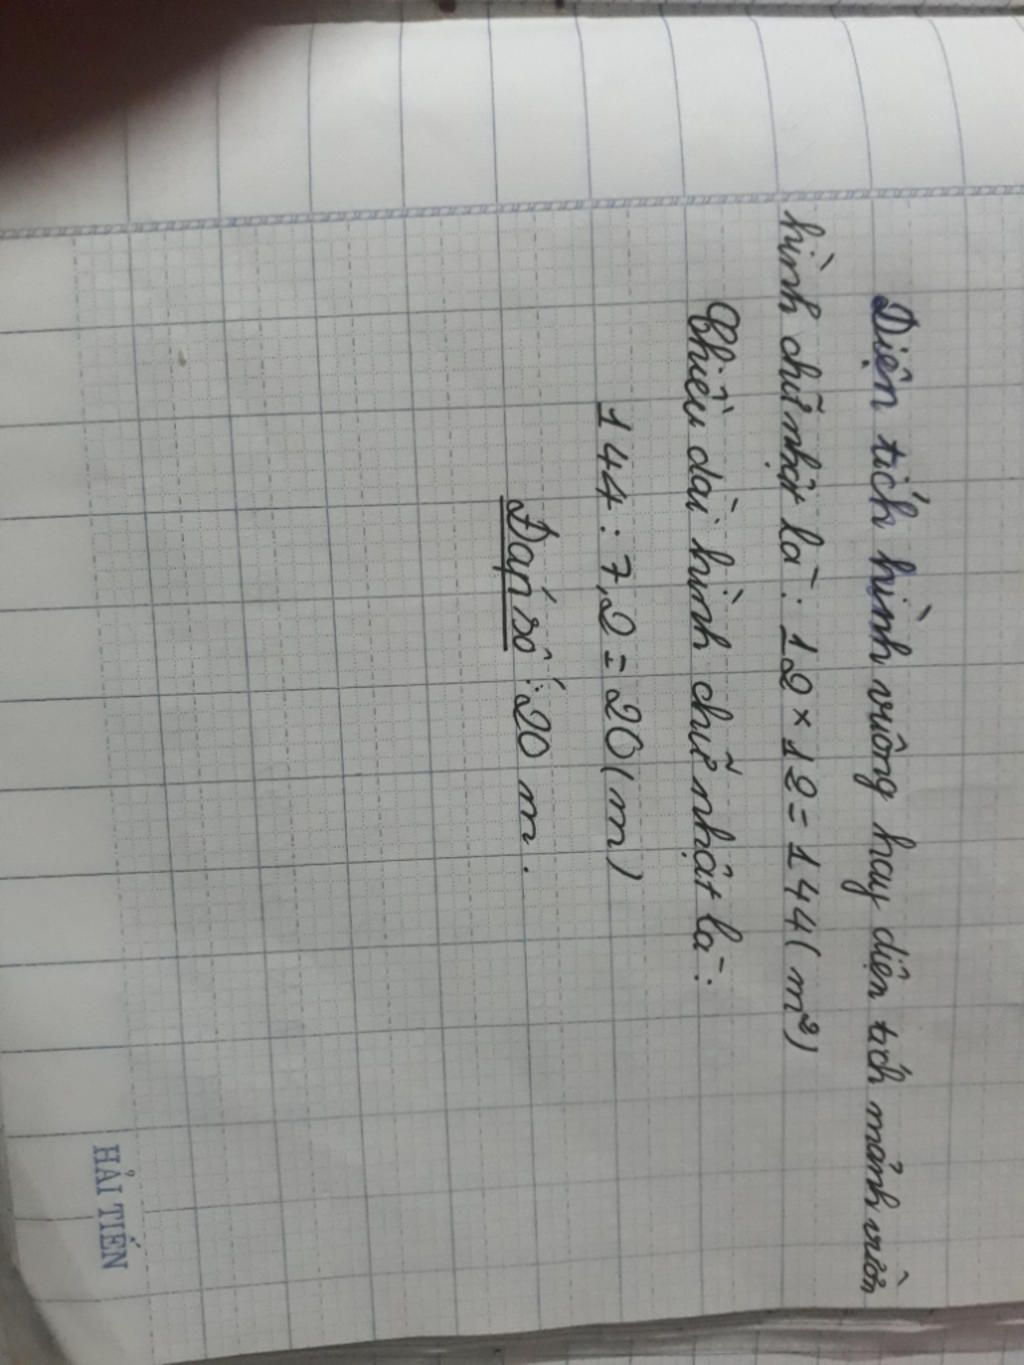 Diện tích hình vuông hay diện tích mảnh vườn
hình chữ nhật là : 12 × 12 = 144 ( m²)
Chiều dài hình chữ nhật là :
144 : 7,2 = 20 ( m )
Đáp số : 20 m .
HẢI TIẾN